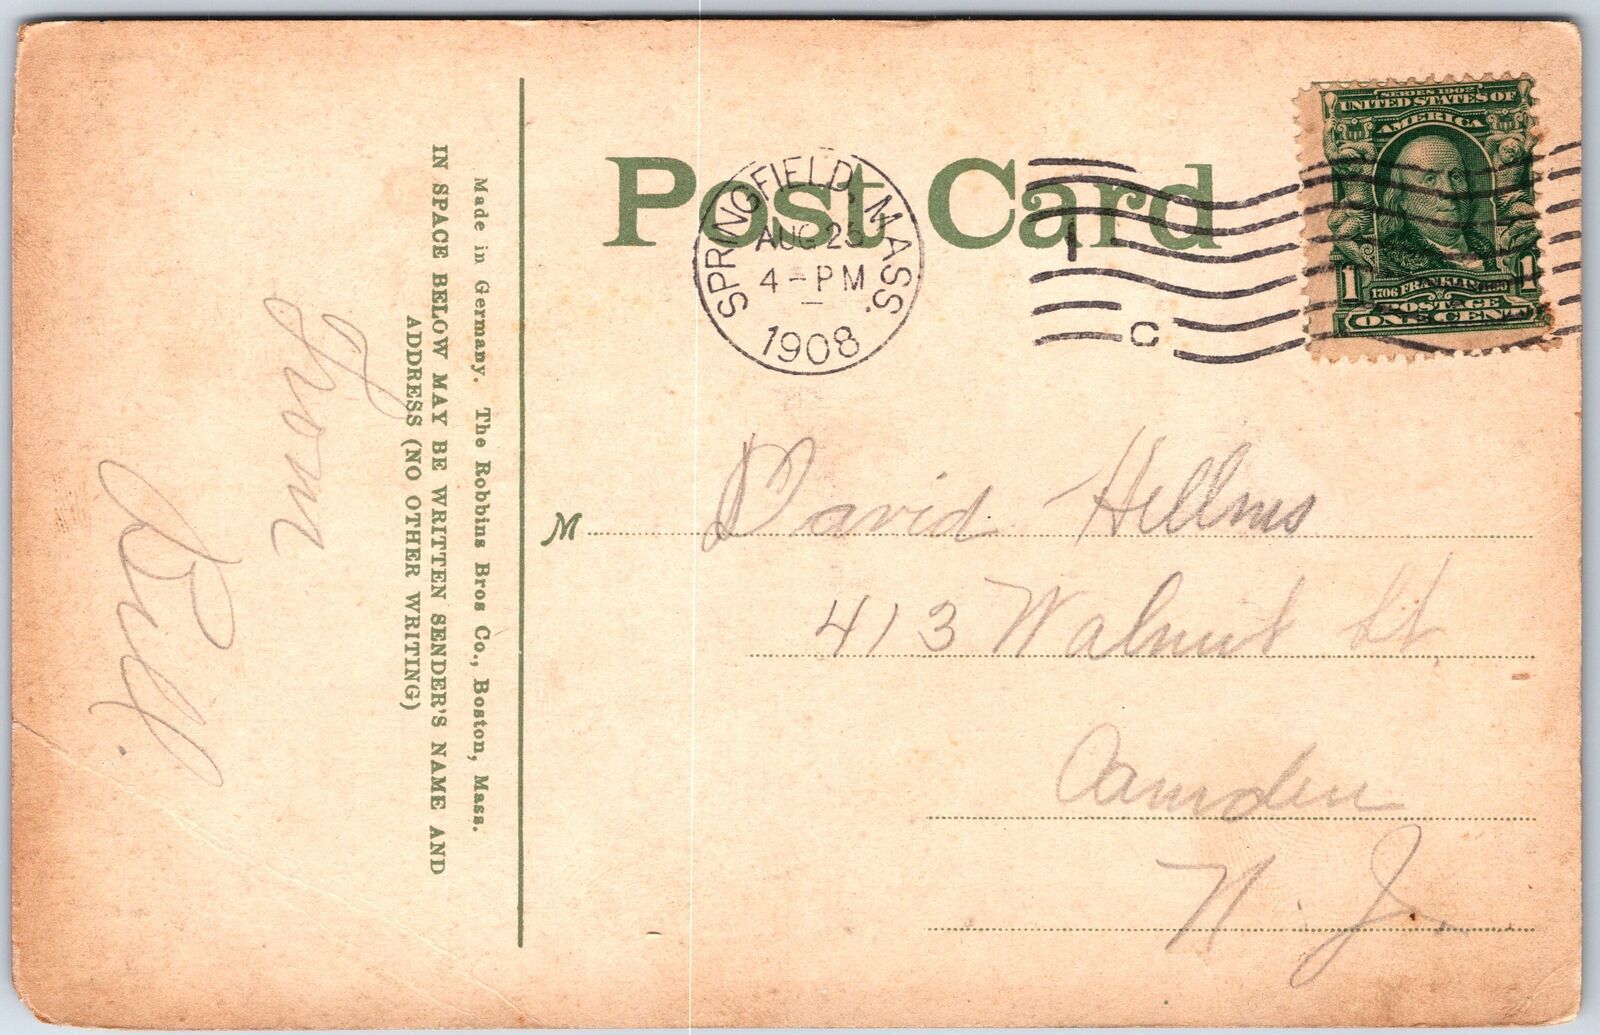 Post Card
SPRINGFIELD, MASS.
AUG 23
4-PM
1908
1
C
SERIES 1902
UNITED STATES OF
AMERICA
1 1
1706 FRANKLIN 1790
POSTAGE
ONE CENT
Made in Germany. The Robbins Bros Co., Boston, Mass.
IN SPACE BELOW MAY BE WRITTEN SENDER'S NAME AND
ADDRESS (NO OTHER WRITING)
From
Bill.
M David Hellms
413 Walnut St.
Camden
N. J.